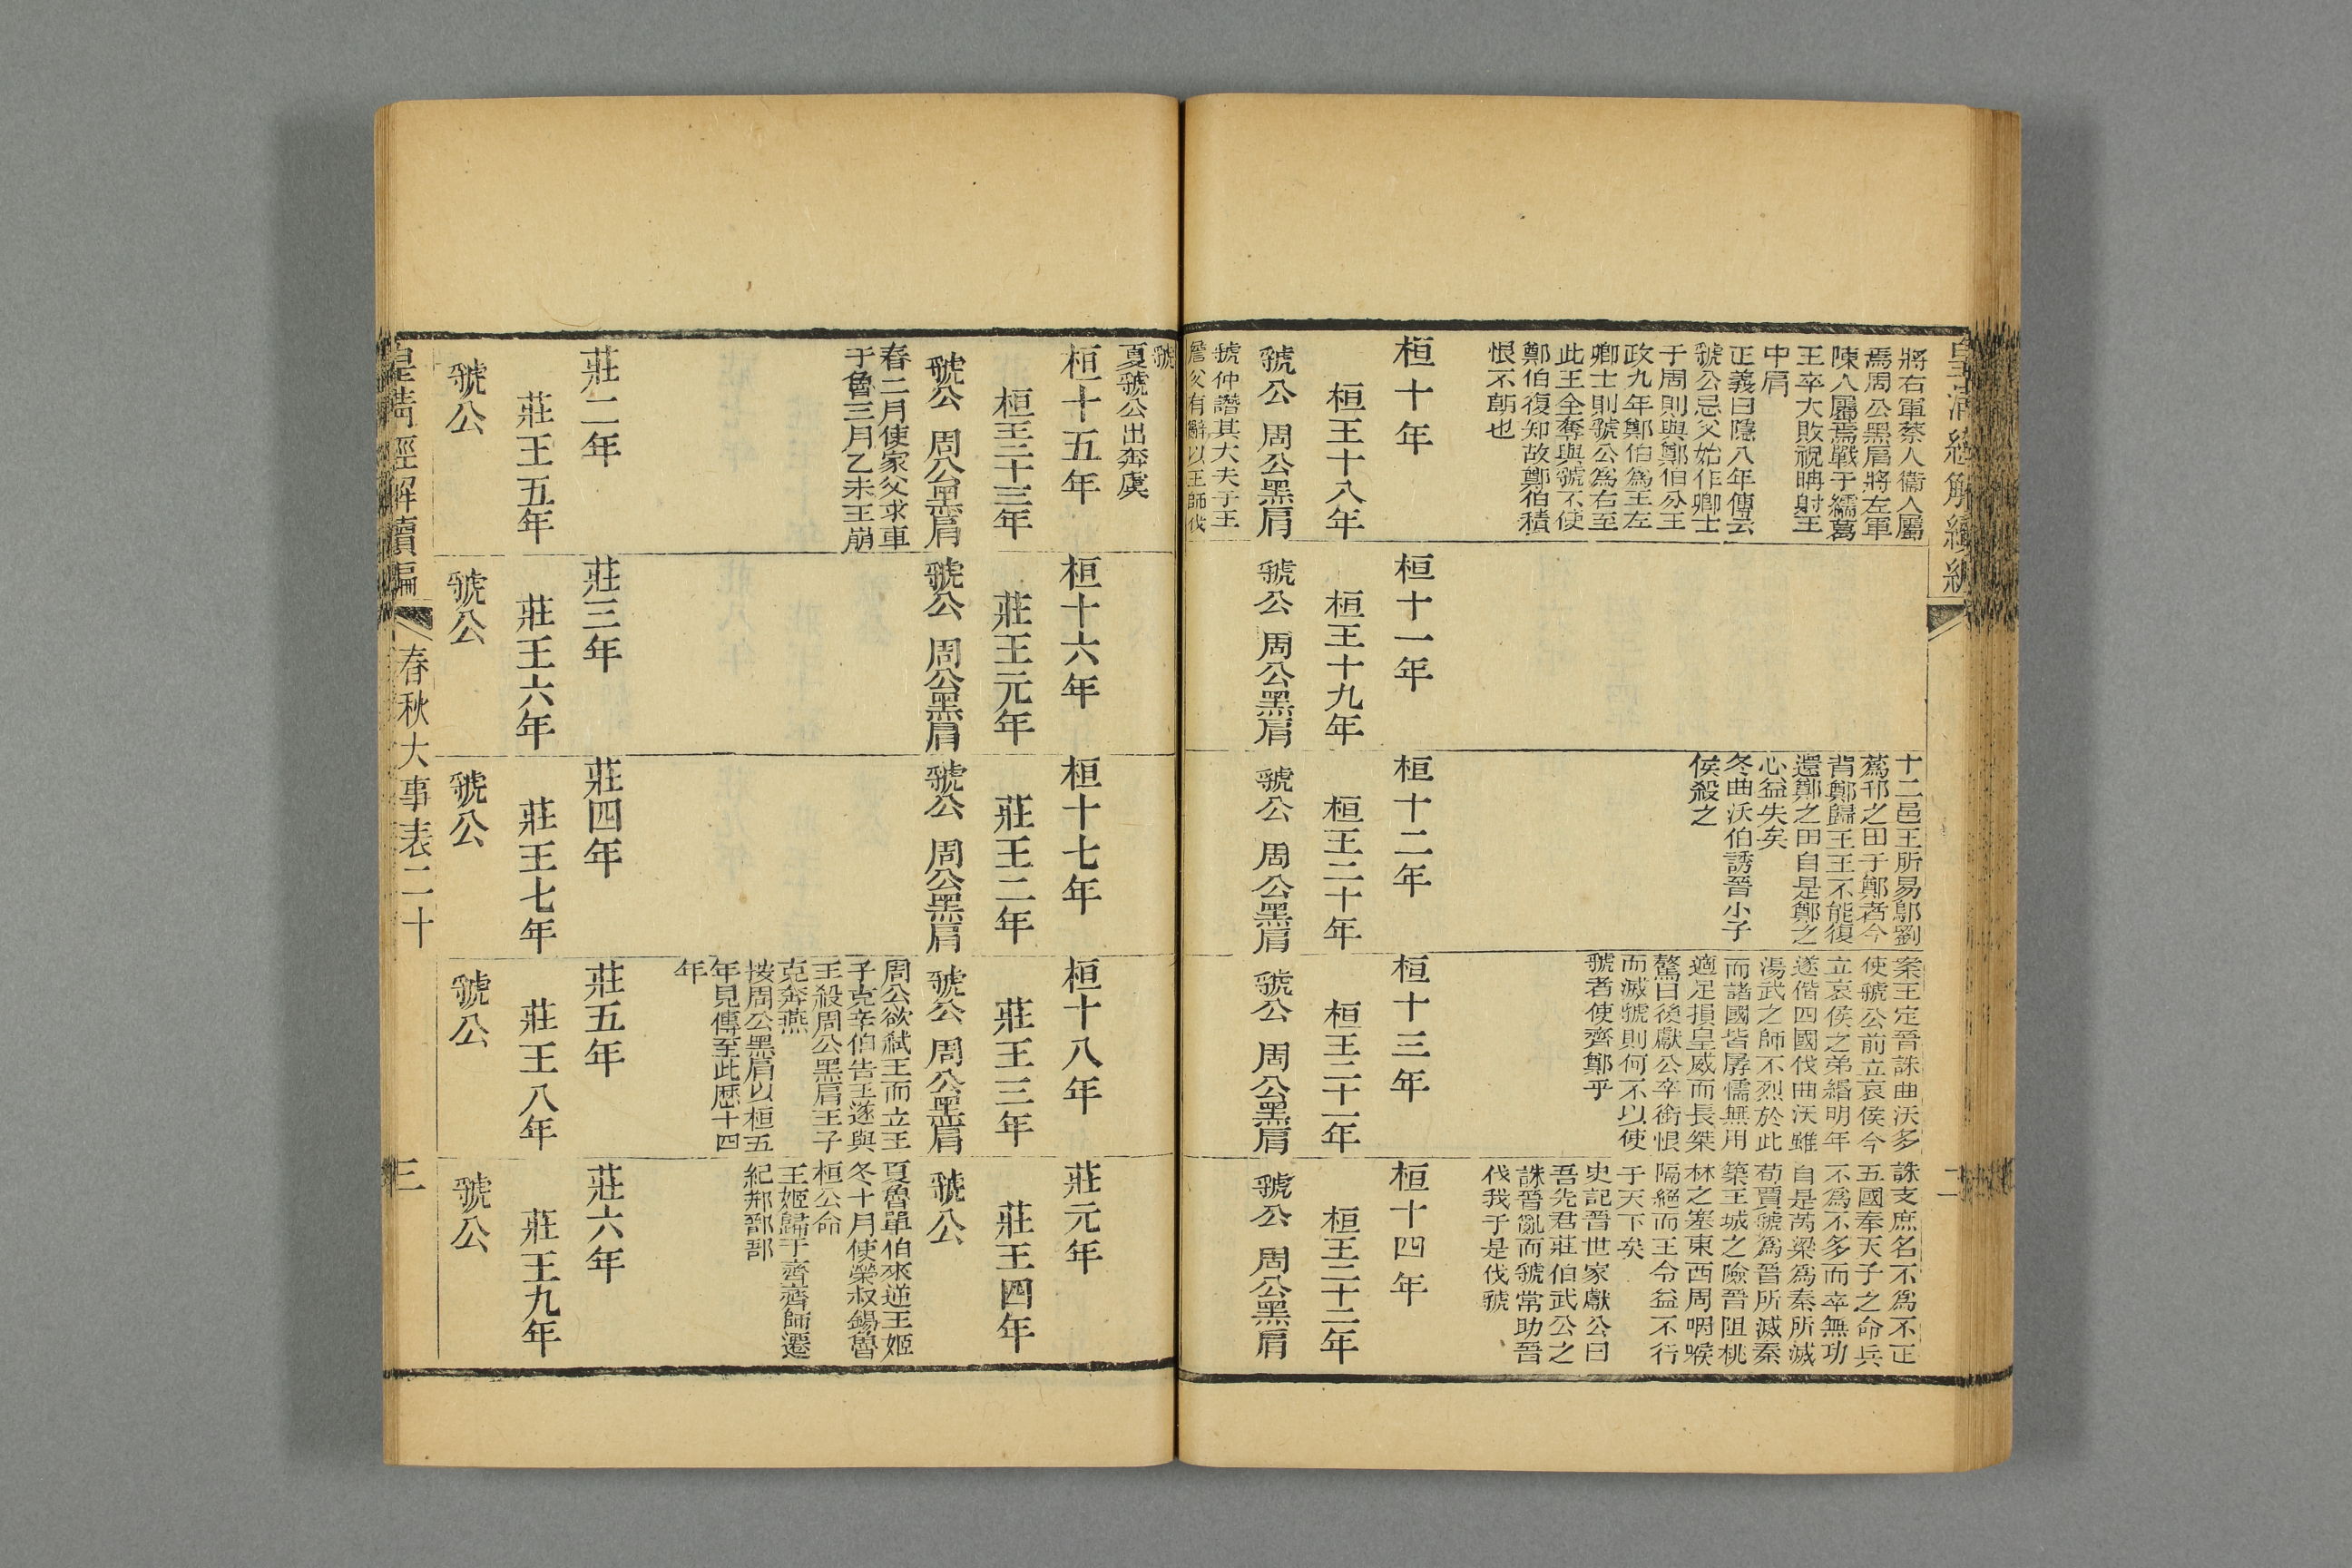 將右軍蔡人衞人屬
焉周公黑肩將左軍
陳人屬焉戰于繻葛
王卒大敗祝聃射王
中肩
正義曰隱八年傳云
虢公忌父始作卿士
于周則與鄭伯分王
政九年鄭伯為王左
卿士則虢公為右至
此王全奪與虢不使
鄭伯復知故鄭伯積
恨不朝也
十二邑王所易鄔劉
蒍邘之田于鄭者今
背鄭歸王王不能復
還鄭之田自是鄭之
心益失矣
冬曲沃伯誘晉小子
侯殺之
案王定晉誅曲沃多
使虢公前立哀侯今
立哀侯之弟緡明年
遂偕四國伐曲沃雖
湯武之師不烈於此
而諸國皆孱懦無用
適足損皇威而長桀
驁曰後獻公卒銜恨
而滅虢則何不以使
虢者使齊鄭乎
誅支庶名不為不正
五國奉天子之命兵
不為不多而卒無功
自是芮梁為秦所滅
荀賈虢為晉所滅秦
築王城之險晉阻桃
林之塞東西周咽喉
隔絕而王令益不行
于天下矣
史記晉世家獻公曰
吾先君莊伯武公之
誅晉亂而虢常助晉
伐我于是伐虢
桓十年
桓十一年
桓十二年
桓十三年
桓十四年
桓王十八年
桓王十九年
桓王二十年
桓王二十一年
桓王二十二年
虢公 周公黑肩
虢公 周公黑肩
虢公 周公黑肩
虢公 周公黑肩
虢公 周公黑肩
虢仲譖其大夫于王
詹父有辭以王師伐
虢
夏虢公出奔虞
桓十五年
桓十六年
桓十七年
桓十八年
莊元年
桓王二十三年
莊王元年
莊王二年
莊王三年
莊王四年
虢公 周公黑肩
虢公 周公黑肩
虢公 周公黑肩
虢公 周公黑肩
虢公
春二月使家父求車
于魯三月乙未王崩
周公欲弑王而立王
子克辛伯告王遂與
王殺周公黑肩王子
克奔燕
按周公黑肩以桓五
年見傳至此歷十四
年
夏魯單伯來逆王姬
冬十月使榮叔錫魯
桓公命
王姬歸于齊齊師遷
紀郱鄑郚
莊二年
莊三年
莊四年
莊五年
莊六年
莊王五年
莊王六年
莊王七年
莊王八年
莊王九年
虢公
虢公
虢公
虢公
虢公
皇清經解續編
春秋大事表二十
三